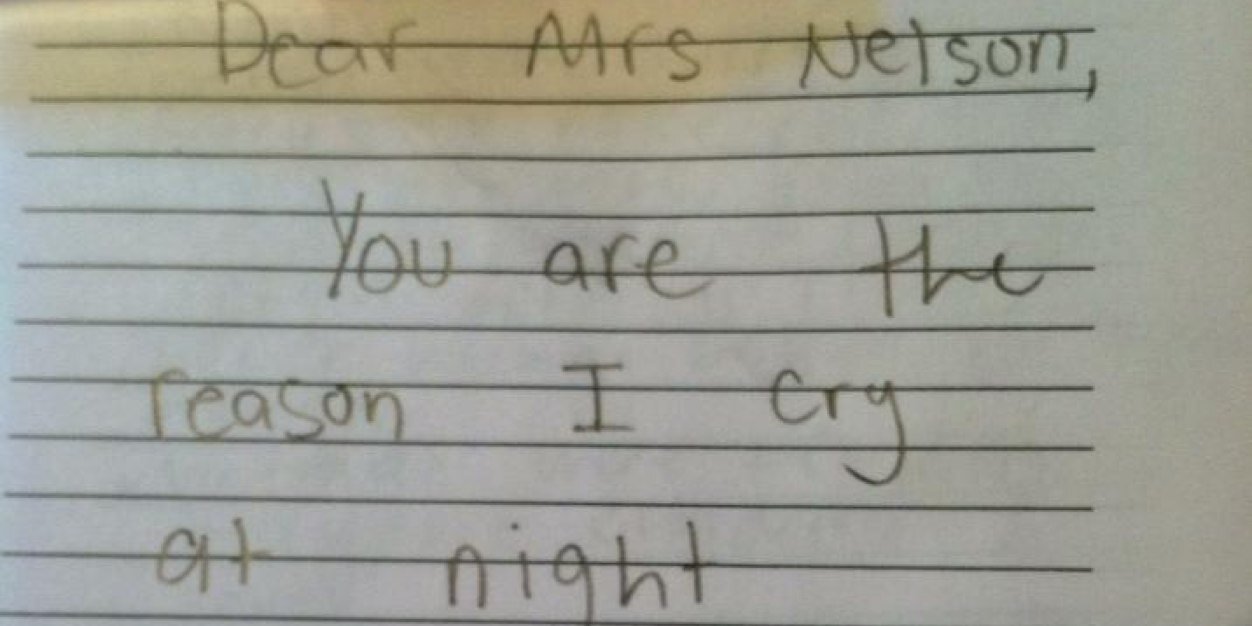 Dear Mrs Nelson,
You are the
reason I cry
at night